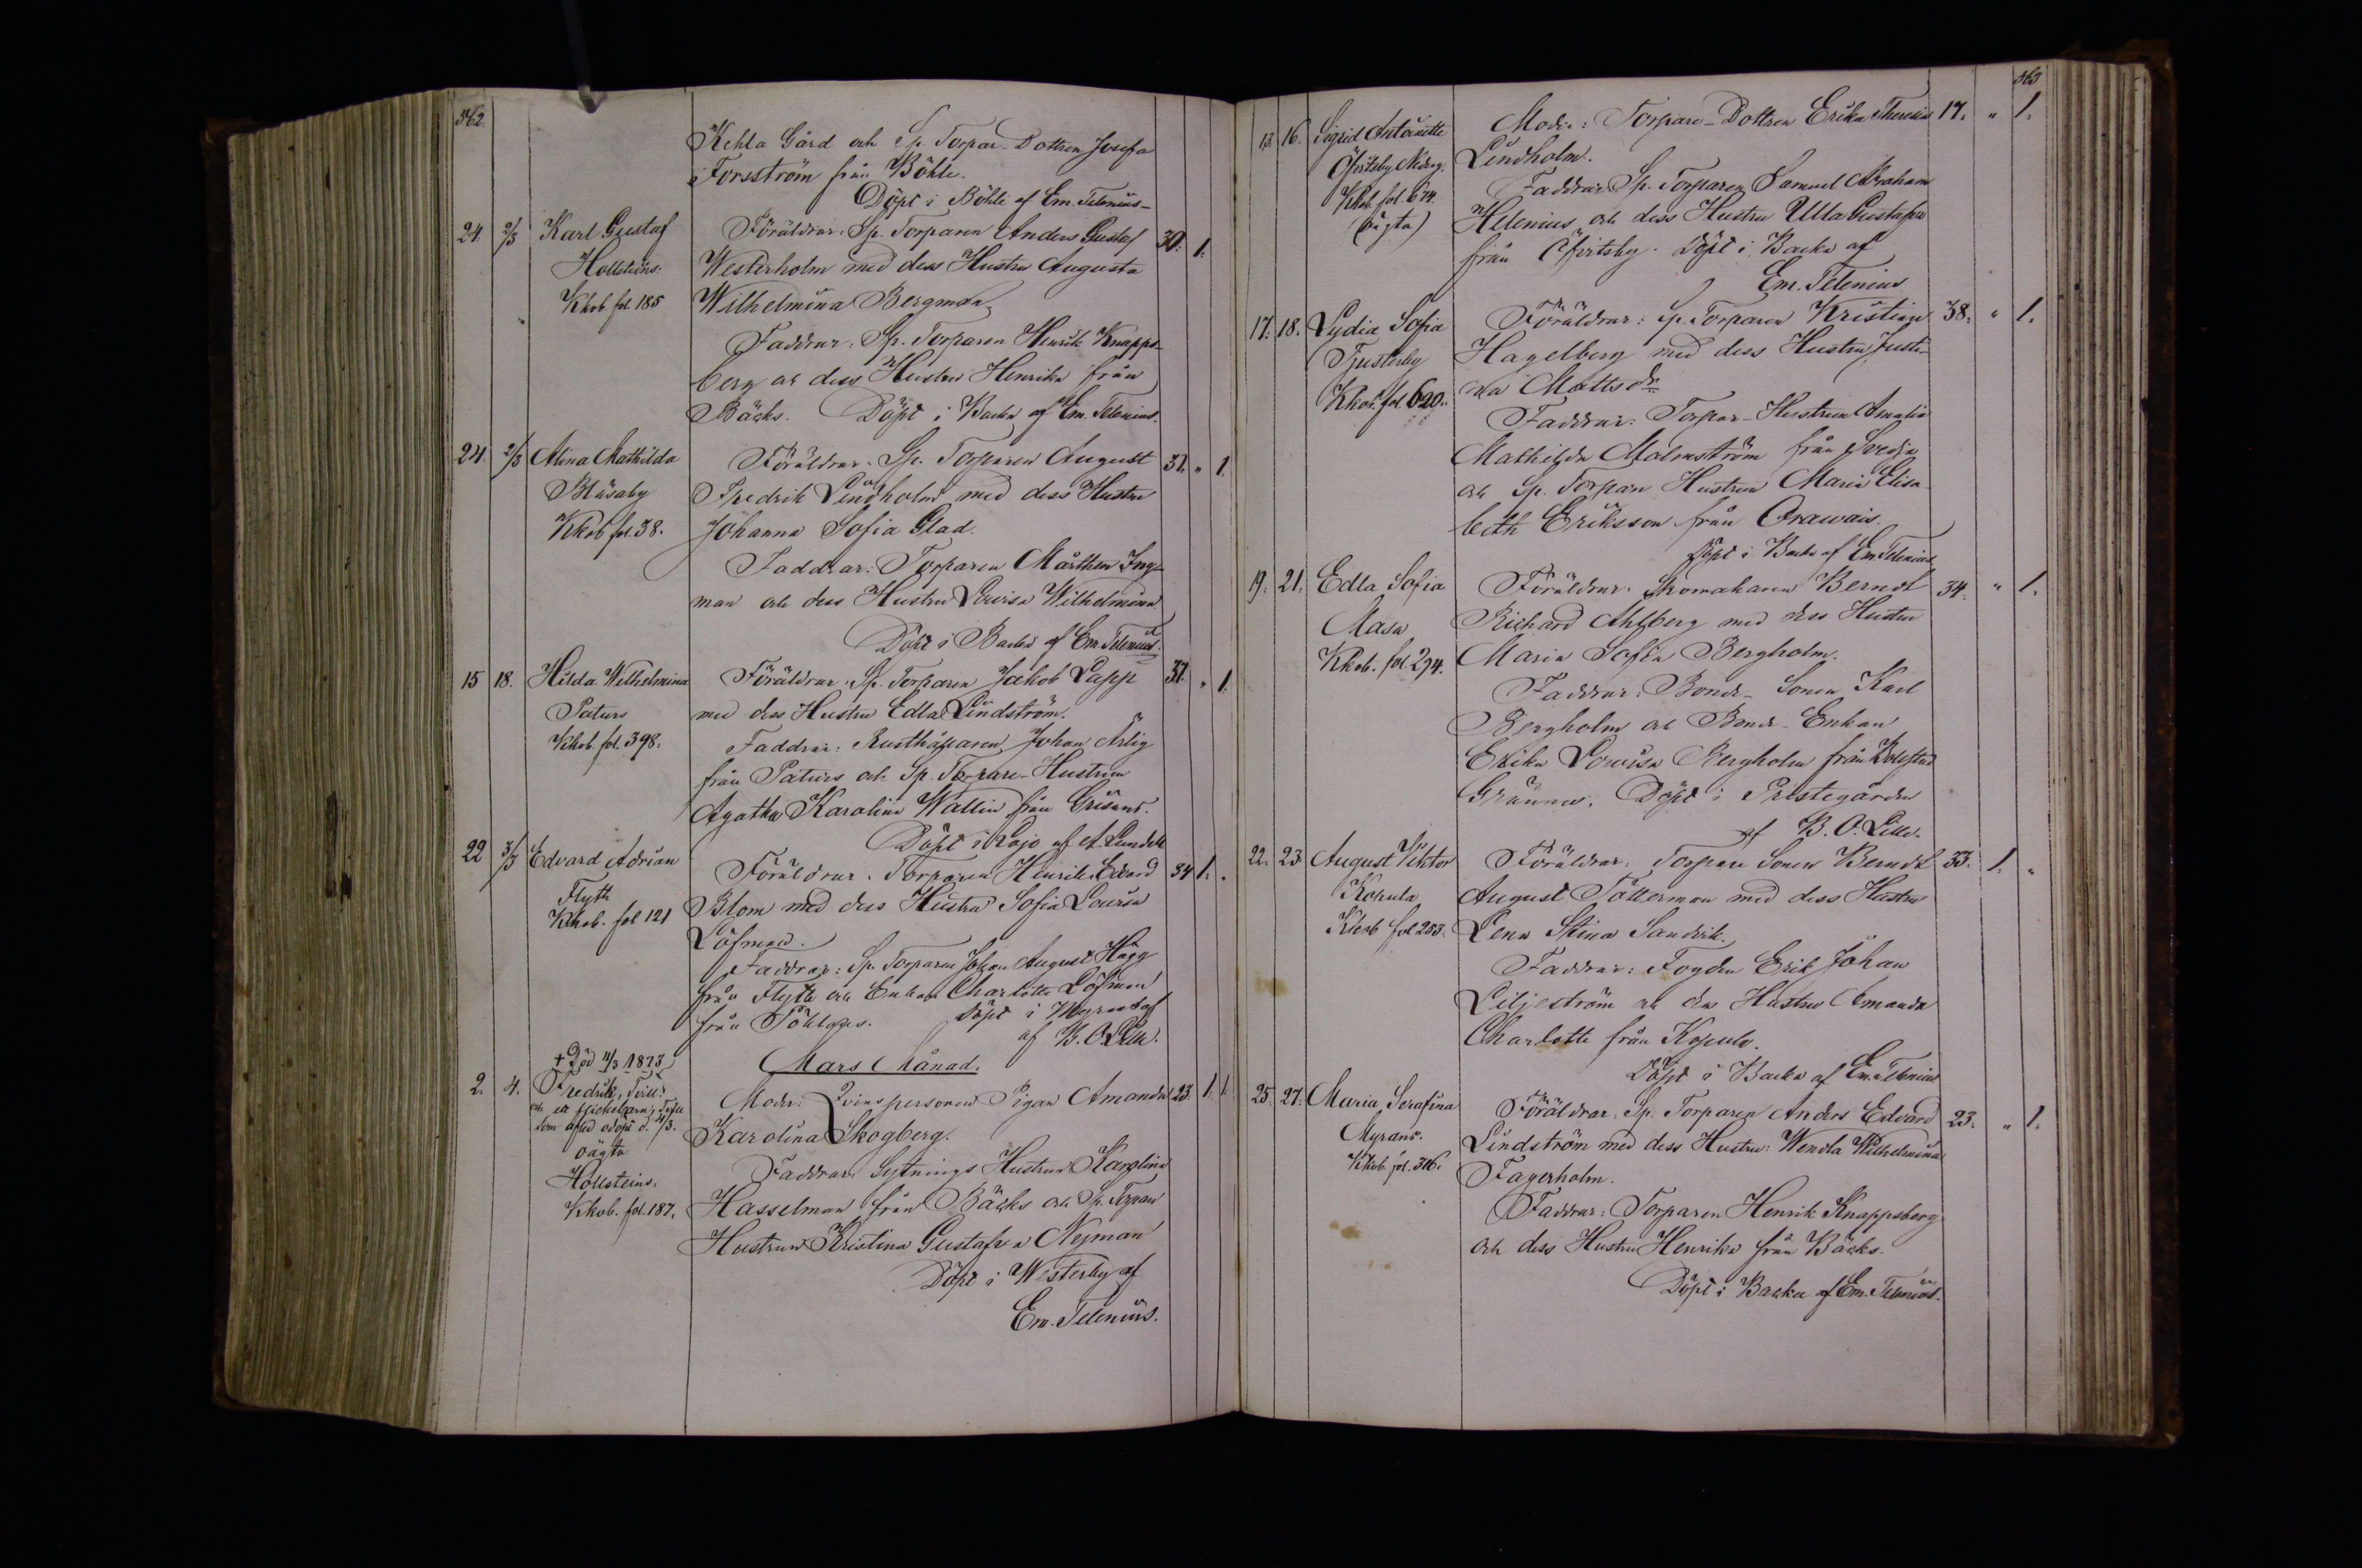 562.
Kehla Gård och Sp. Torpar-Dottren Josefa
Forsström från Böhle.
Döpt i Böhle af Em. Telenius-
24. 2/3 Karl Gustaf
Hollsteins.
Kkob. fol 185
Föräldrar: Sp. Torparen Anders Gustaf 30. 1.
Westerholm med dess Hustru Augusta
Wilhelmina Bergman
Faddrar: Sp. Torparen Henrik Knapps-
berg och dess Hustru Henrika från
Bäcks. Döpt i Backa af Em. Telenius.
24. 2/3 Alina Mathilda
Bläsaby
Kkob fol. 38.
Föräldrar: Sp. Torparen August 31. " 1.
Fredrik Lindholm med dess Hustru
Johanna Sofia Glad.
Faddrar: Torparen Mårthen Ing-
man och dess Hustru Lovisa Wilhelmina
Döpt i Backa af Em. Telenius.
15 18. Hilda Wilhelmina
Paturs
Kkob. fol. 398.
Föräldrar: Sp. Torparen Jakob Lapp 31. " 1.
med dess Hustru Edla Lindström.
Faddrar: Rusthållaren Johan Ärlig
från Paturs och Sp. Torpare-Hustrun
Agatha Karolina Wallin från Grisans.
Döpt i Lojo af A. Lundell
22 3/3 Edvard Adrian
Flyth
Kkob. fol 121
Föräldrar: Torparen Henrik Edvard 34 1. "
Blom med dess Hustru Sofia Lovisa
Löfman.
Faddrar: Sp. Torparen Johan August Hägg
från Flyth och Enkan Charlotta Löfman
från Döpt i
af B. O. Lille.
Mars Månad.
+ Död 11/3 1873
2. 4. Fredrik, Tvill.
och ett flickebarn,
som afled odöpt d. 4/3.
oägta
Hollsteins.
Kkob. fol. 187.
Moder: Qvinspersonen Pigan Amanda 23. 1. 1.
Karolina Skogberg.
Faddrar: Sytnings Hustrun Karolina
Hasselman från Bäcks och Sp. Torpare
Hustrun Kristina Gustafva Nyman
Döpt i Westerby af
Em. Telenius.
563
13. 16. Sigrid Antoinette
Öfvitsby
Kkob. fol. 674.
(oägta)
Moder: Torpare-Dottren Erika Theresia 17. " 1.
Lindholm.
Faddrar: Sp. Torparen Samuel Abraham
Helenius och dess Hustru Ulla Gustafva
från Öfvitsby. Döpt i Backa af
Em. Telenius
17. 18. Lydia Sofia
Tjusterby
Kkob. fol. 620.
Föräldrar: Sp. Torparen Kristian 38. " 1.
Hagelberg med dess Hustru Justi-
na Mattsdr.
Faddrar: Torpar-Hustrun Amalia
Mathilda Malmström från Svedja
och Sp. Torpare Hustrun Maria Elisa-
beth Eriksson från Orawais.
Döpt i Backa af Em. Telenius
19. 21. Edla Sofia
Masa
Kkob. fol. 294.
Föräldrar: Skomakaren Berndt 34. " 1.
Richard Ahlberg med dess Hustru
Maria Sofia Bergholm.
Faddrar: Bonde-Sonen Karl
Bergholm och Bonde-Enkan
Erika Lovisa Bergholm från Bolstad
Grännas. Döpt i Prestegården
af B. O. Lille.
22. 23. August Viktor
Kopula
Kkob fol 253.
Föräldrar: Torpare Sonen Berndt 33. 1. "
August Tötterman med dess Hustru
Lena Stina Sandvik.
Faddrar: Fogden Erik Johan
Liljeström och dess Hustru Amanda
Charlotta från Kopula.
Döpt i Backa af Em. Telenius
25. 27. Maria Serafina
Myrans.
Kkob. fol. 316.
Föräldrar: Sp. Torparen Anders Edvard 23. " 1.
Lindström med dess Hustru: Wendla Wilhelmina
Fagerholm.
Faddrar: Torparen Henrik Knappsberg
och dess Hustru Henrika från Bäcks.
Döpt i Backa af Em. Telenius.